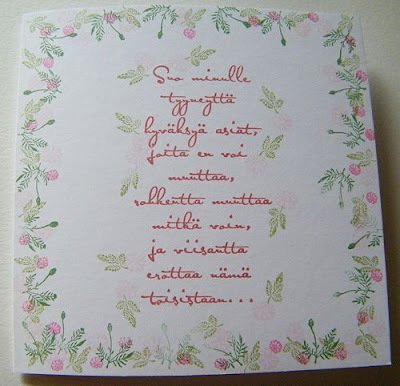 Suo minulle
tyyneyttä
hyväksyä asiat,
joita en voi
muuttaa,
rohkeutta muuttaa
mitkä voin,
ja viisautta
erottaa nämä
toisistaan...